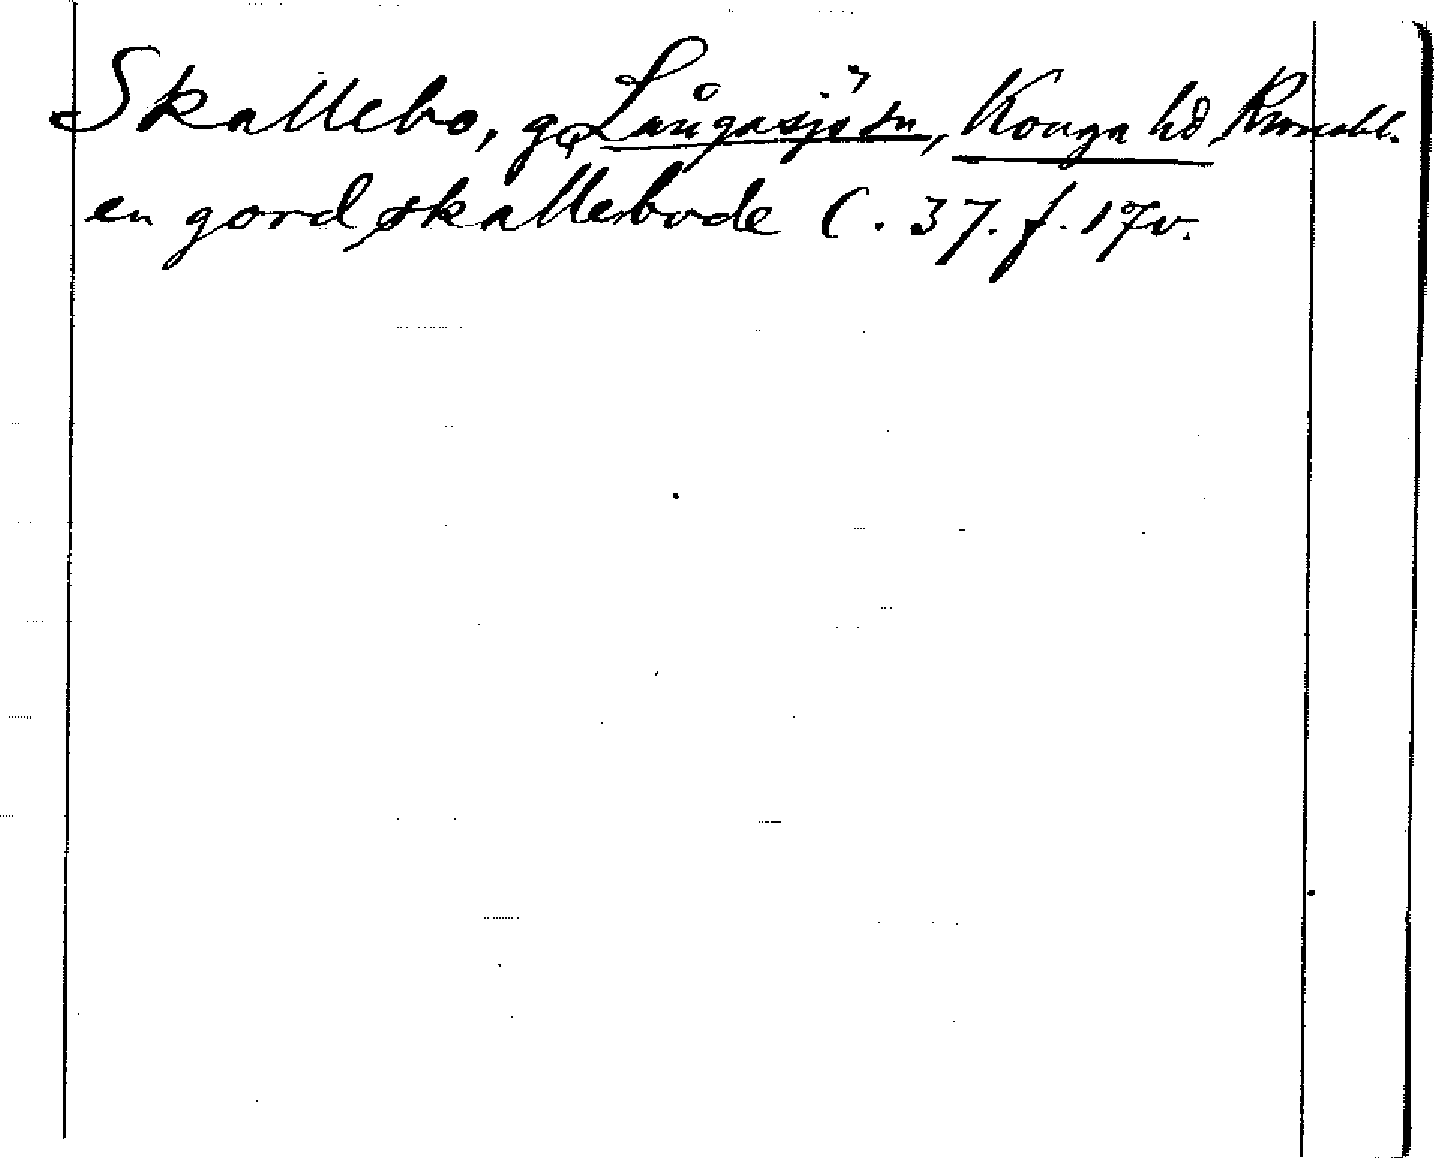 Skallebo, gd Långasjö sn, Konga hd Kronobl.
en gord skallebode C. 37. f. 17v.